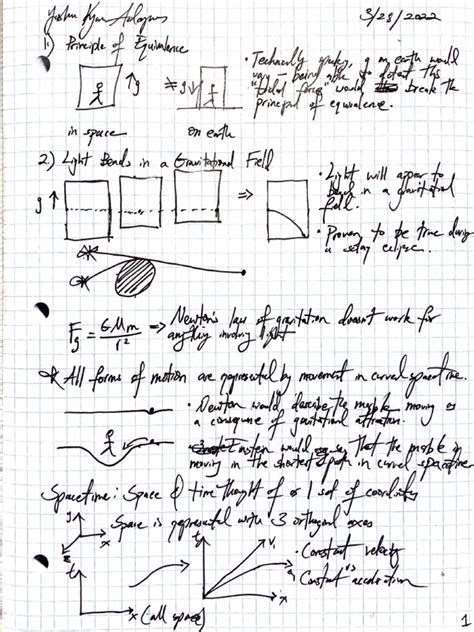 3/23/2022
1.) Principle of Equivalence
• Technically speaking, g on earth would
vary – being able to detect this
"tidal force" would break the
principal of equivalence.
↑g
in space
on earth
2.) Light Bends in a Gravitational Field
g↑
⇒
• Light will appear to
bend in a gravitational
field.
• Proven to be true during
a solar eclipse.
Fg = GMm/r² ⇒ Newton's law of gravitation doesn't work for
anything involving light
* All forms of motion are represented by movement in curved spacetime.
• Newton would describe the moving as
a consequence of gravitational attraction.
Einstein would say that the
moving in the shortest path in curved spacetime
Spacetime: Space & time thought of as 1 set of coordinates
Space is represented with 3 orthogonal axes
y
x
z
t
x (all space)
t
V₁
x
• Constant velocity
vs
Constant acceleration
1